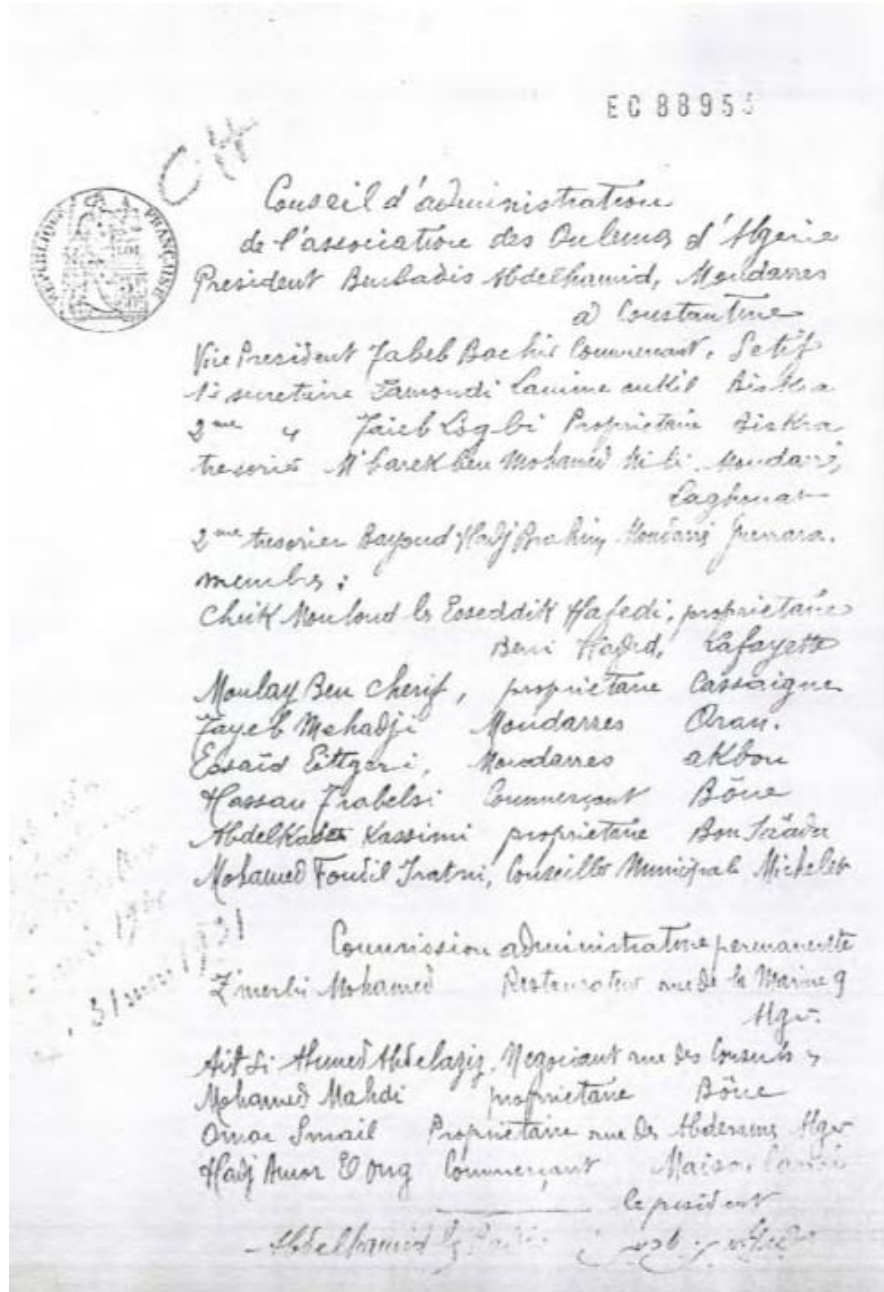 EC 8895
RÉPUBLIQUE FRANÇAISE
Conseil d'administration
de l'association des Oulemas d'Algerie
President Benbadis Abdelhamid, Moudarres
à Constantine
Vice President Taleb Bachir Commercant, Setif
1er secretaire Lamoudi Lamine oukil Biskra
2me " Taieb Logbi Proprietaire Biskra
tresorier M'barek ben Mohamed Mili Moudarris
Laghouat
2me tresorier Bayoud Hadj Brahim Moudarris Guerrara.
membres :
Cheik Mouloud ben Esseddik Hafedi, proprietaire
Beni Hafed, Lafayette
Moulay Ben Cherif, proprietaire Cassaigne
Tayeb Mehadji Moudarres Oran.
Essaïd Eittgeri, Moudarres akbou
Hassan Trabelsi Commerçant Bône
Abdelkader Kassimi proprietaire Bou Sâada
Mohamed Foudil Iratni, Conseiller Municipal Michelet
31 1931
Commission administrative permanente
Z'merli Mohamed Restaurateur rue de la Marine 9
Alger.
Ait Si Ahmed Abdelaziz, Negociant rue des Consuls
Mohamed Mahdi proprietaire Bône
Omar Smail Proprietaire rue des Abderames Alger
Hadj Amor Commerçant Maison
le president
Abdelhamid